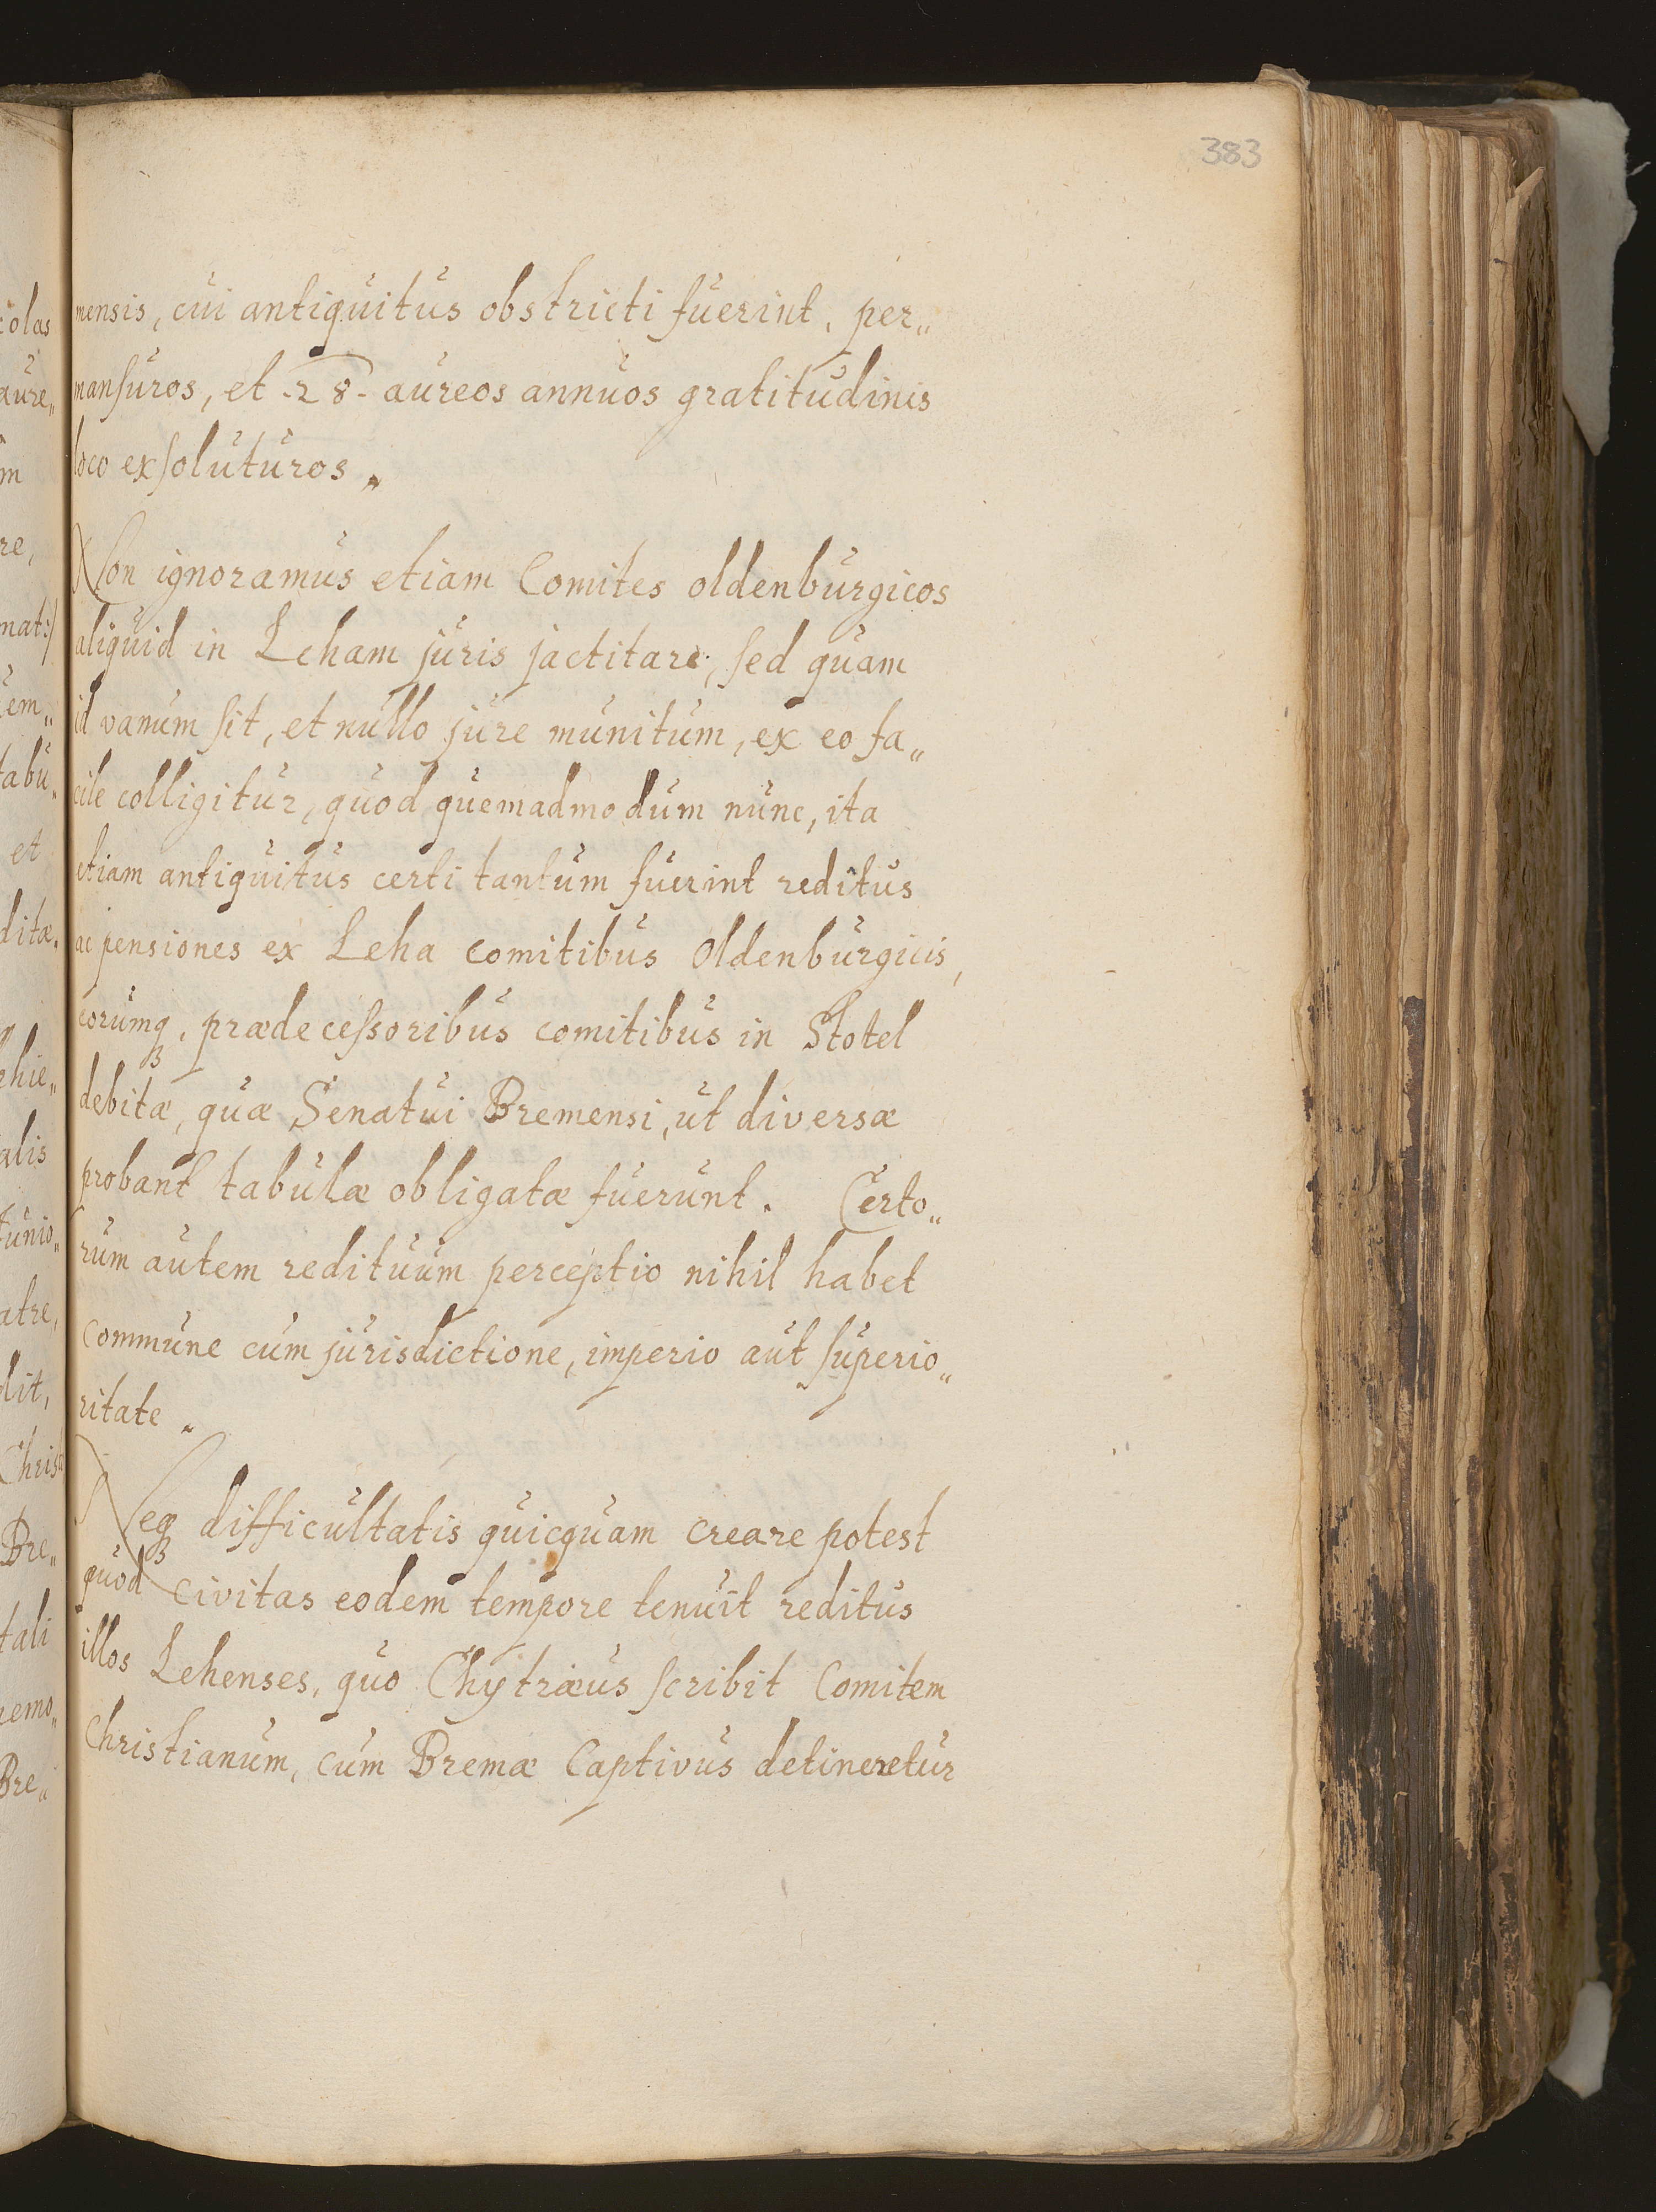 383
mensis, cui antiquitus obstricti fuerint, per„
mansuros, et -28- aureos annuos gratitudinis
loco exsoluturos.
Non ignoramus etiam Comites oldenburgicos
aliquid in Leham juris jactitare, sed quam
id vanum sit, et nullo jure munitum, ex eo fa„
cile colligitur, quod quemadmodum nunc, ita
etiam antiquitus certi tantum fuerint reditus
ac pensiones ex Leha comitibus Oldenburgicis,
eorumq, prædecessoribus comitibus in Stotel
debitæ, quæ Senatui Bremensi, ut diversæ
probant tabulæ obligatæ fuerunt. Certo„
rum autem redituum perceptio nihil habet
commune cum jurisdictione, imperio aut superio„
ritate.
Neq difficultatis quicquam creare potest
quod Civitas eodem tempore tenuit reditus
illos Lehenses, quo Chytræus scribit Comitem
Christianum, cum Bremæ Captivus detineretur